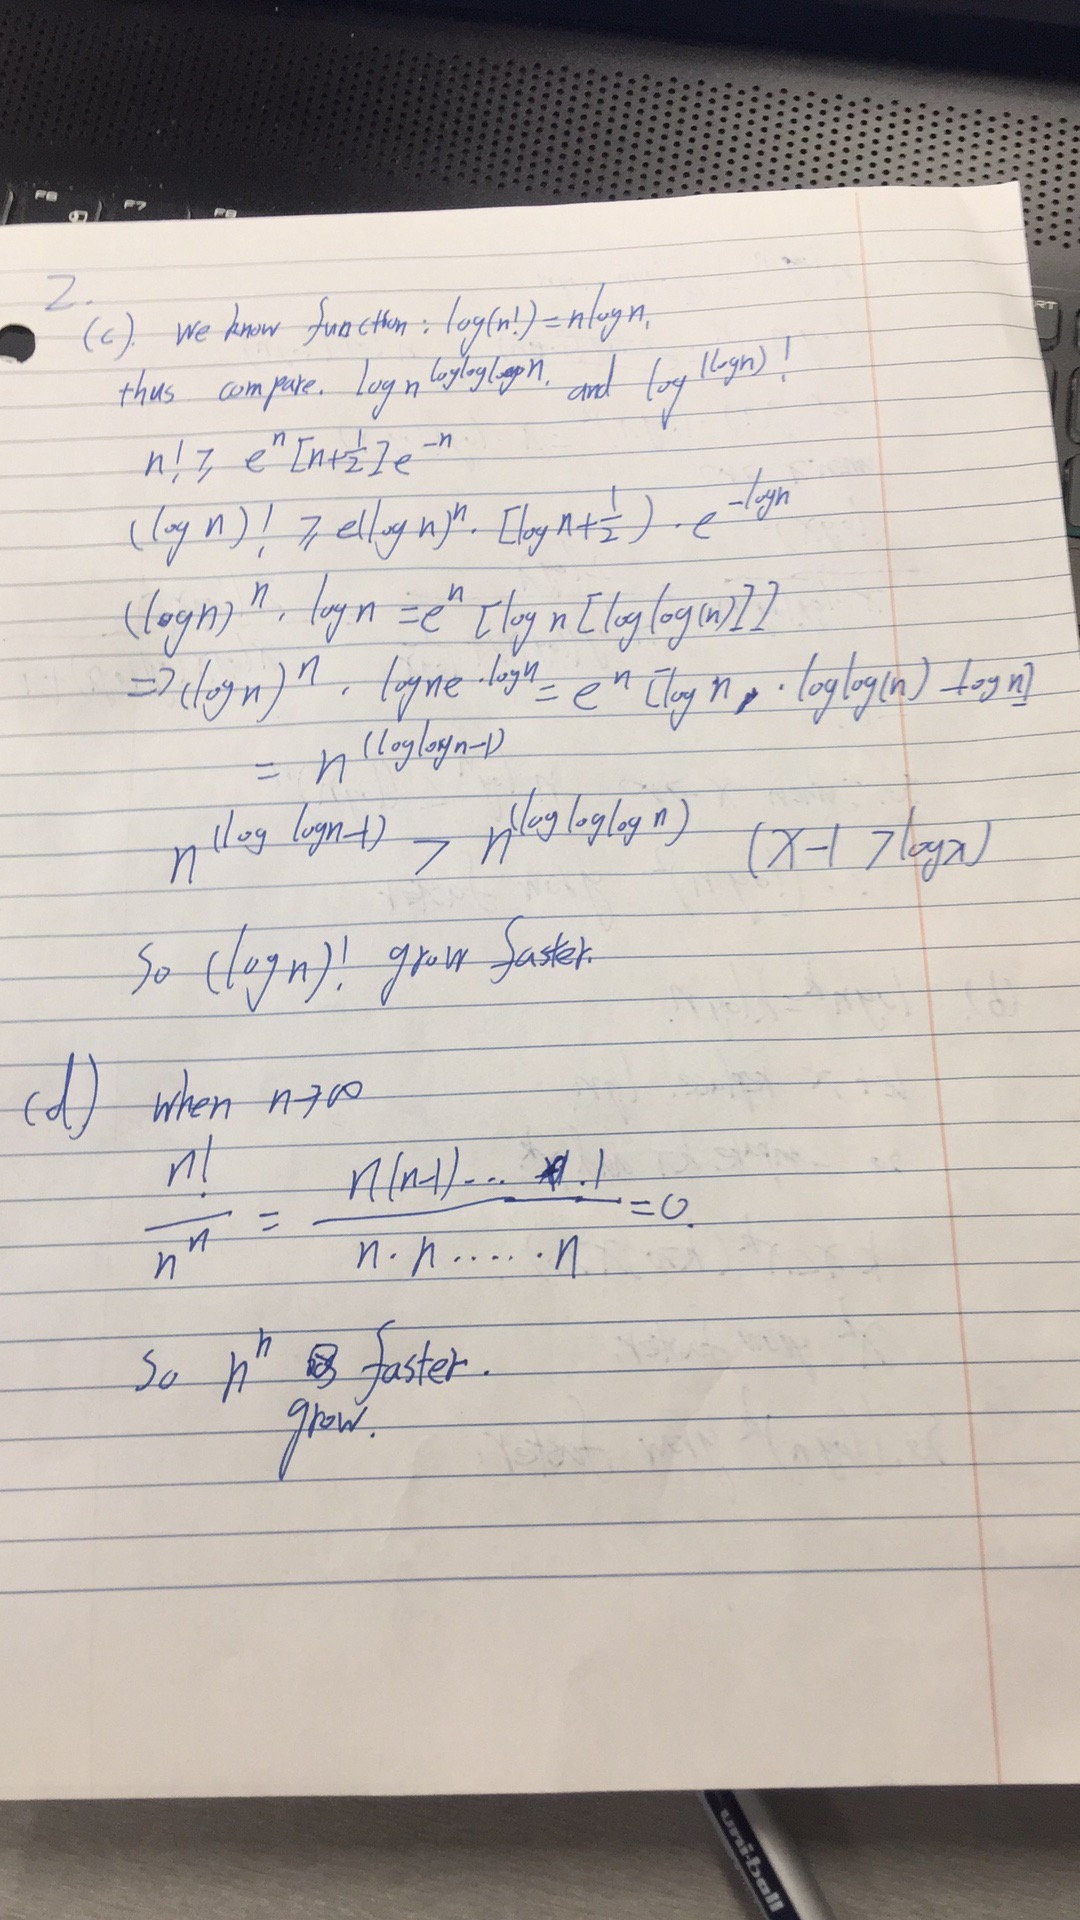 F6
F7
F8
2.
(c). We know function: log(n!) = nlogn,
thus compare. log n^logloglogn. and log^(logn)!
n! ≥ e^n [n+1/2] e^-n
(log n)! ≥ e(log n)^n. [log n+1/2) . e^-logn
(logn)^n . logn = e^n [log n [loglog(n)]]
=> (logn)^n . logne^.logn = e^n [log n, . loglog(n) -log n]
= n^(loglogn-1)
n^(log logn-1) > n^(logloglog n) (x-1 > logx)
So (logn)! grow faster.
(d.) when n→∞
n!/n^n = n(n-1)... .1/n.n.....n = 0.
So n^n faster.
grow.
uni-ball